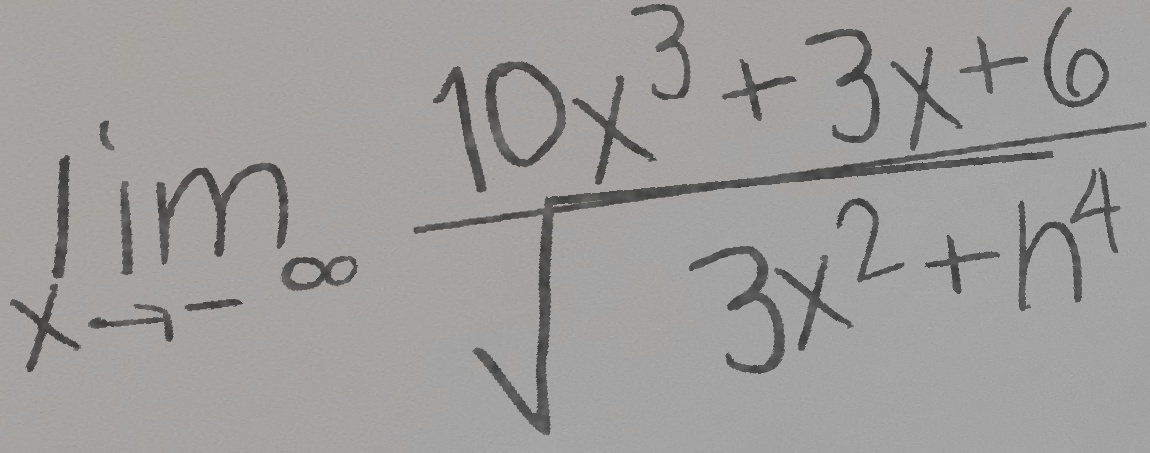 lim x→-∞ \frac{10x^3+3x+6}{\sqrt{3x^2+n^4}}